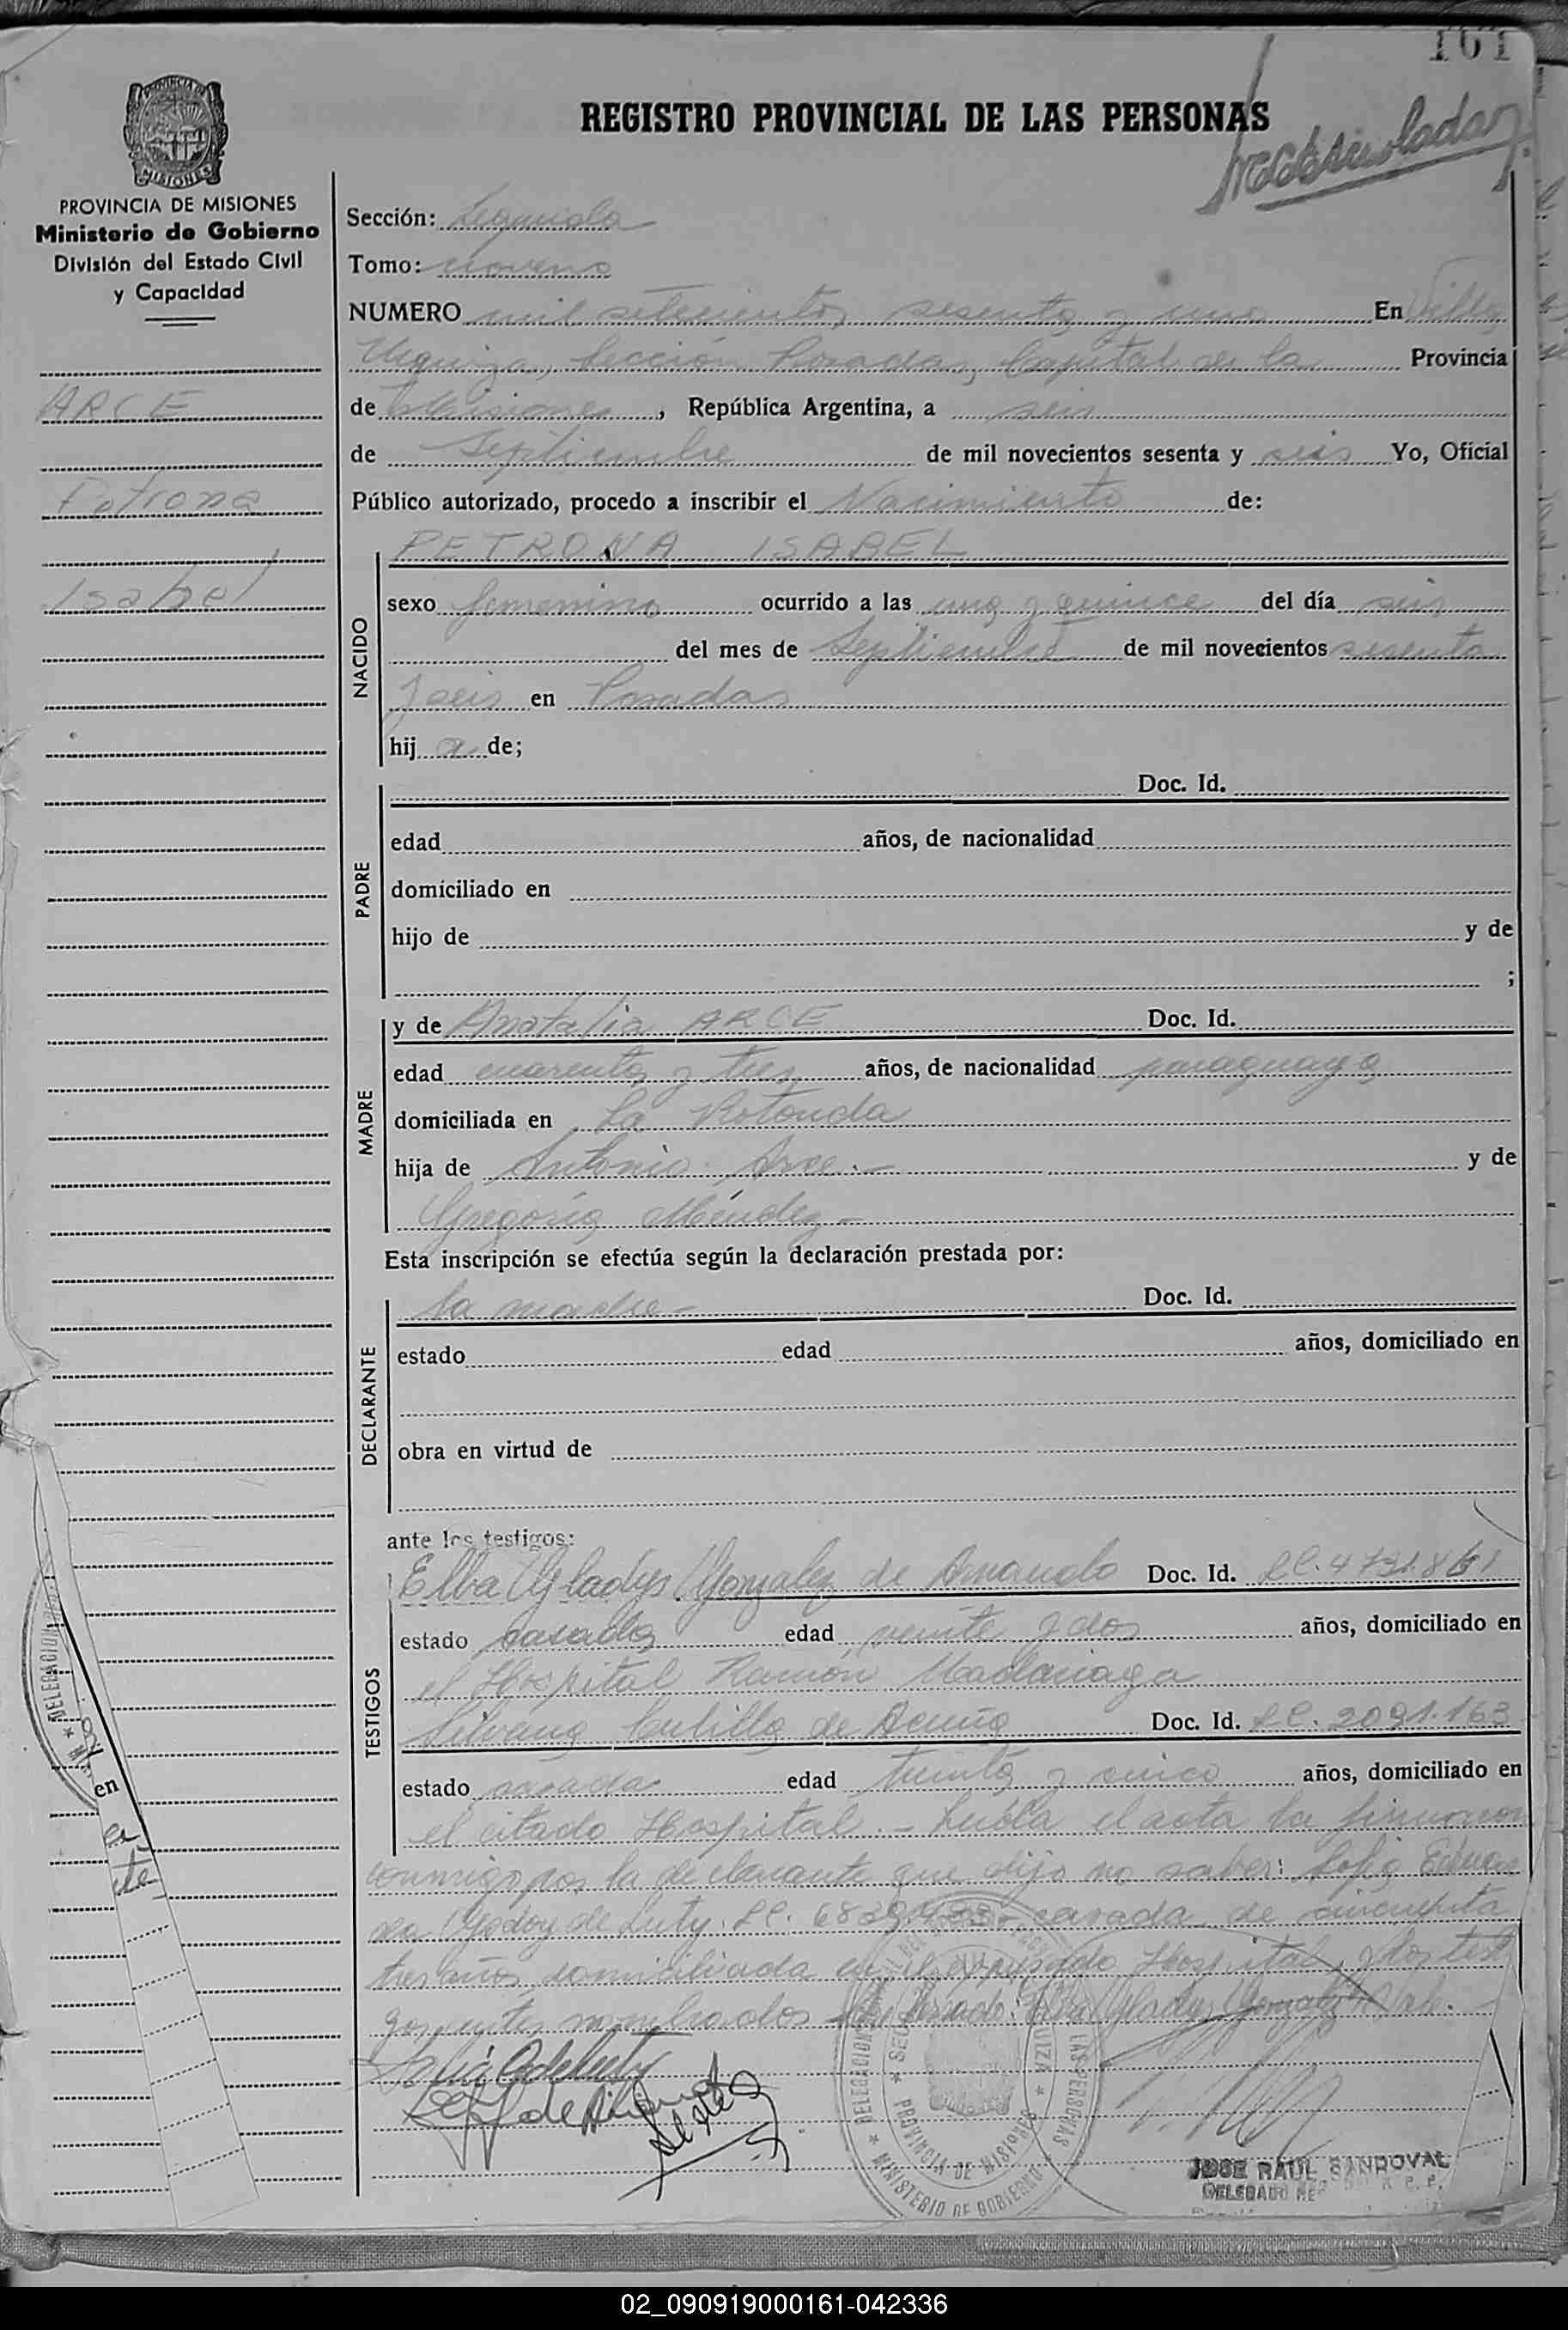 161
REGISTRO PROVINCIAL DE LAS PERSONAS
PROVINCIA DE MISIONES
Ministerio de Gobierno
División del Estado Civil
y Capacidad
ARCE
Petrona
Isabel
Sección:
Tomo: noveno
NUMERO mil setecientos sesenta y uno En Villa
Urquiza, Sección Posadas, Capital de la Provincia
de Misiones, República Argentina, a seis
de Septiembre de mil novecientos sesenta y seis Yo, Oficial
Público autorizado, procedo a inscribir el Nacimiento de:
NACIDO
PETRONA ISABEL
sexo femenino ocurrido a las una y quince del día seis
del mes de Septiembre de mil novecientos sesenta
y seis en Posadas
hij a de;
PADRE
Doc. Id.
edad años, de nacionalidad
domiciliado en
hijo de y de
;
MADRE
y de Anatalia ARCE Doc. Id.
edad cuarenta y tres años, de nacionalidad paraguaya
domiciliada en La Rotonda
hija de Antonio Arce.- y de
Gregoria Méndez-
Esta inscripción se efectúa según la declaración prestada por:
DECLARANTE
la madre- Doc. Id.
estado edad años, domiciliado en
obra en virtud de
ante los testigos:
TESTIGOS
Elba Gladys Gonzalez de Doc. Id. LC. 4731861
estado casada edad veinte y dos años, domiciliado en
el Hospital Ramón Madariaga
de Acuña Doc. Id. LC. 2091.163
estado casada edad treinta y cinco años, domiciliado en
el citado Hospital.- Leída el acta la firmaron
conmigo por la declarante que dijo no saber:
Godoy de Luty. LC. casada de cincuenta
tres años domiciliada en el expresado Hospital, y los testi
gos antes nombrados Gladys Gonzalez
DELEGACION
PROVINCIA DE MISIONES
MINISTERIO DE GOBIERNO
LAS PERSONAS
JOSE RAUL SANDOVAL
DELEGADO
en
te
02_090919000161-042336